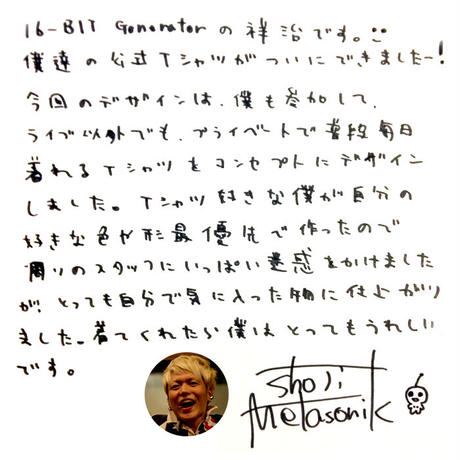 16-BIT Generatorの祥治です。
僕達の公式Tシャツがついにできましたー!
今回のデザインは、僕も参加して、
ライブ以外でも、プライベートで普段毎日
着れるTシャツをコンセプトにデザイン
しました。Tシャツ好きな僕が自分の
好きな色や形最優先で作ったので
周りのスタッフにいっぱい迷惑をかけました
が、とっても自分で気に入った物に仕上がり
ました。着てくれたら僕はとってもうれしい
です。
Shoji
Metasonik